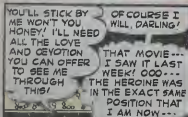 YOU'LL STICK BY
ME WON'T YOU
HONEY! I'LL NEED
ALL THE LOVE
AND DEVOTION
YOU CAN OFFER
TO SEE ME
THROUGH
THIS!
OF COURSE I
WILL, DARLING!
THAT MOVIE---
I SAW IT LAST
WEEK! OOO---
THE HEROINE WAS
IN THE EXACT SAME
POSITION THAT
I AM NOW---